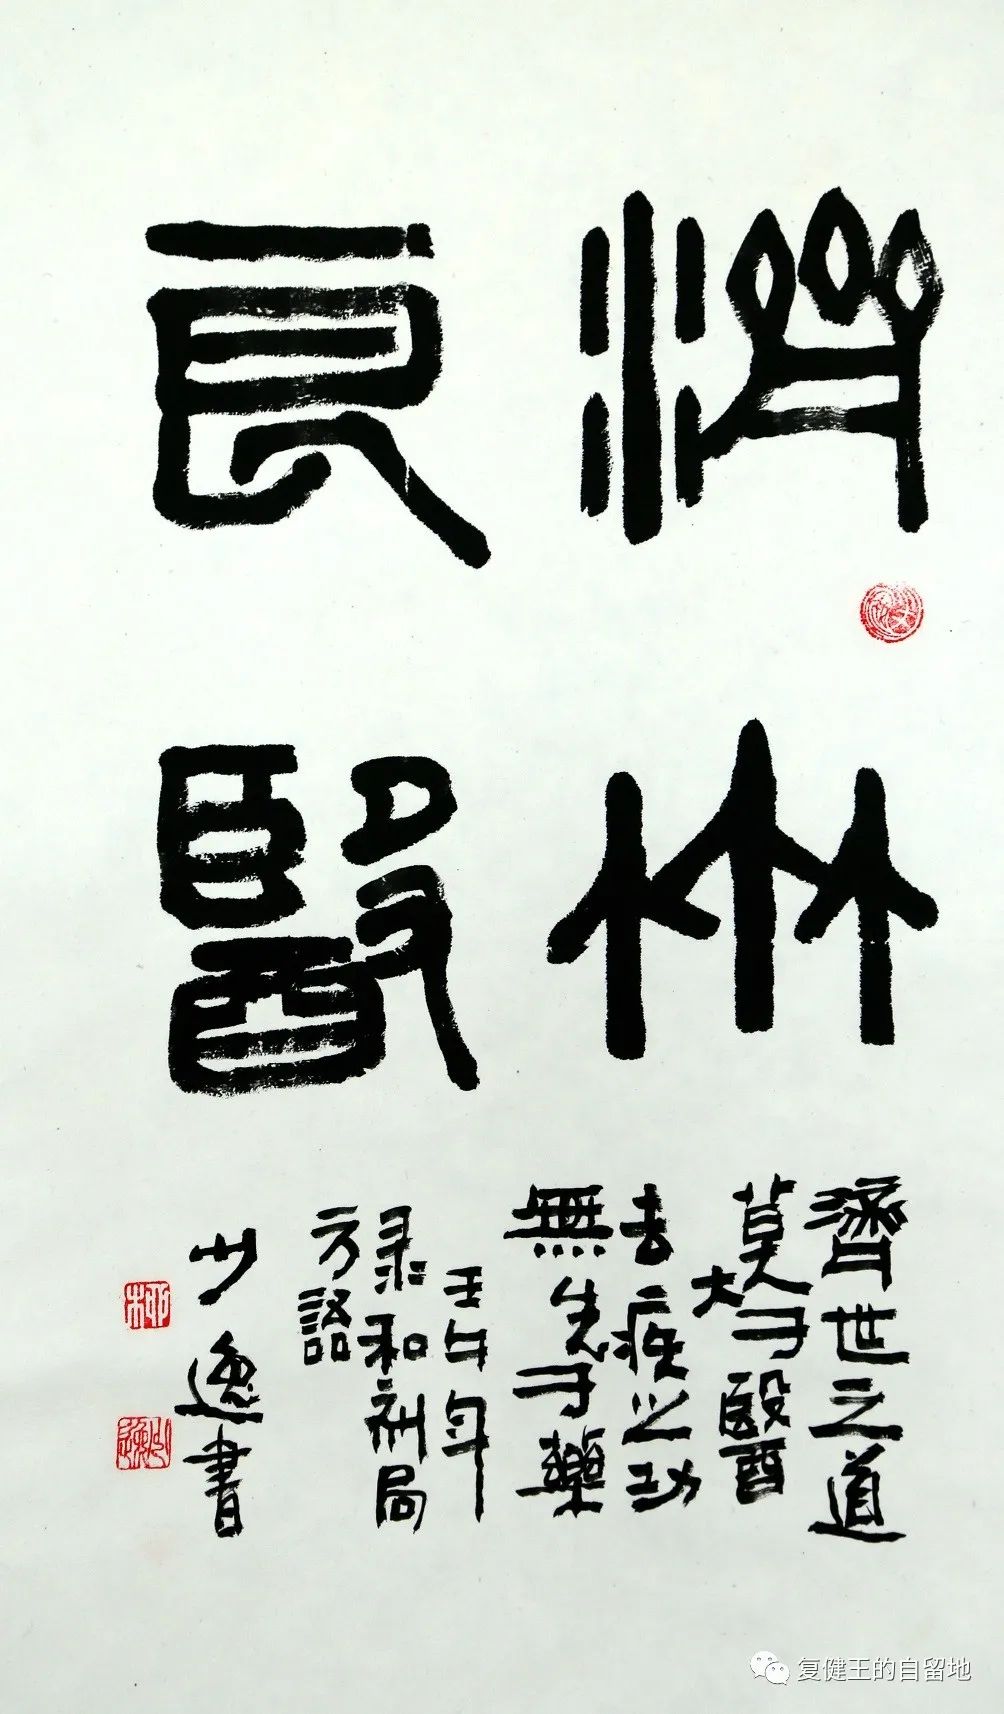 濟世
良醫
濟世之道
莫大于醫
去疾之功
無先于藥
壬午年
录和剂局
方語
少逸書
柳
少逸
复健王的自留地